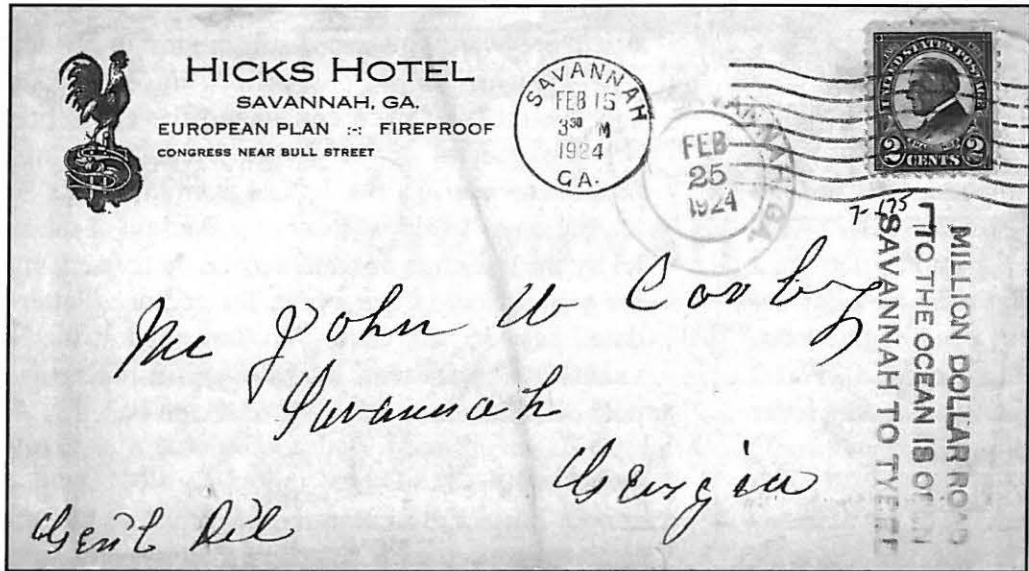 HICKS HOTEL
SAVANNAH, GA.
EUROPEAN PLAN :-: FIREPROOF
CONGRESS NEAR BULL STREET
SAVANNAH
FEB 15
3 30 M
1924
GA.
FEB
25
1924
UNITED STATES POSTAGE
2 CENTS 2
7-175
MILLION DOLLAR ROAD
TO THE OCEAN IS OPEN
SAVANNAH TO TYBEE
Mr John W
Savannah
Georgia
Gen'l Del